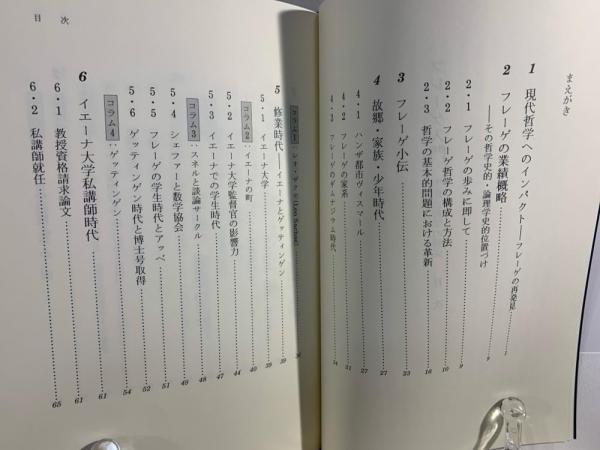 まえがき
1 現代哲学へのインパクト——フレーゲの再発見 1
2 フレーゲの業績概略 9
——その哲学史的・論理学史的位置づけ
2・1 フレーゲの歩みに即して 9
2・2 フレーゲ哲学の構成と方法 10
2・3 哲学の基本的問題における革新 16
3 フレーゲ小伝 23
4 故郷・家族・少年時代 27
4・1 ハンザ都市ヴィスマール 27
4・2 フレーゲの家系 31
4・3 フレーゲのギムナジウム時代 34
目次
コラム1
5 修業時代——イエーナとゲッティンゲン 39
5・1 イエーナ大学 39
コラム2：イエーナの町 40
5・2 イエーナ大学監督官の影響力 44
5・3 イエーナでの学生時代 47
コラム3：スネルと談論サークル 48
5・4 シェファーと数学協会 49
5・5 フレーゲの学生時代とアッベ 51
5・6 ゲッティンゲン時代と博士号取得 52
コラム4：ゲッティンゲン 54
6 イエーナ大学私講師時代 61
6・1 教授資格請求論文 61
6・2 私講師就任 65